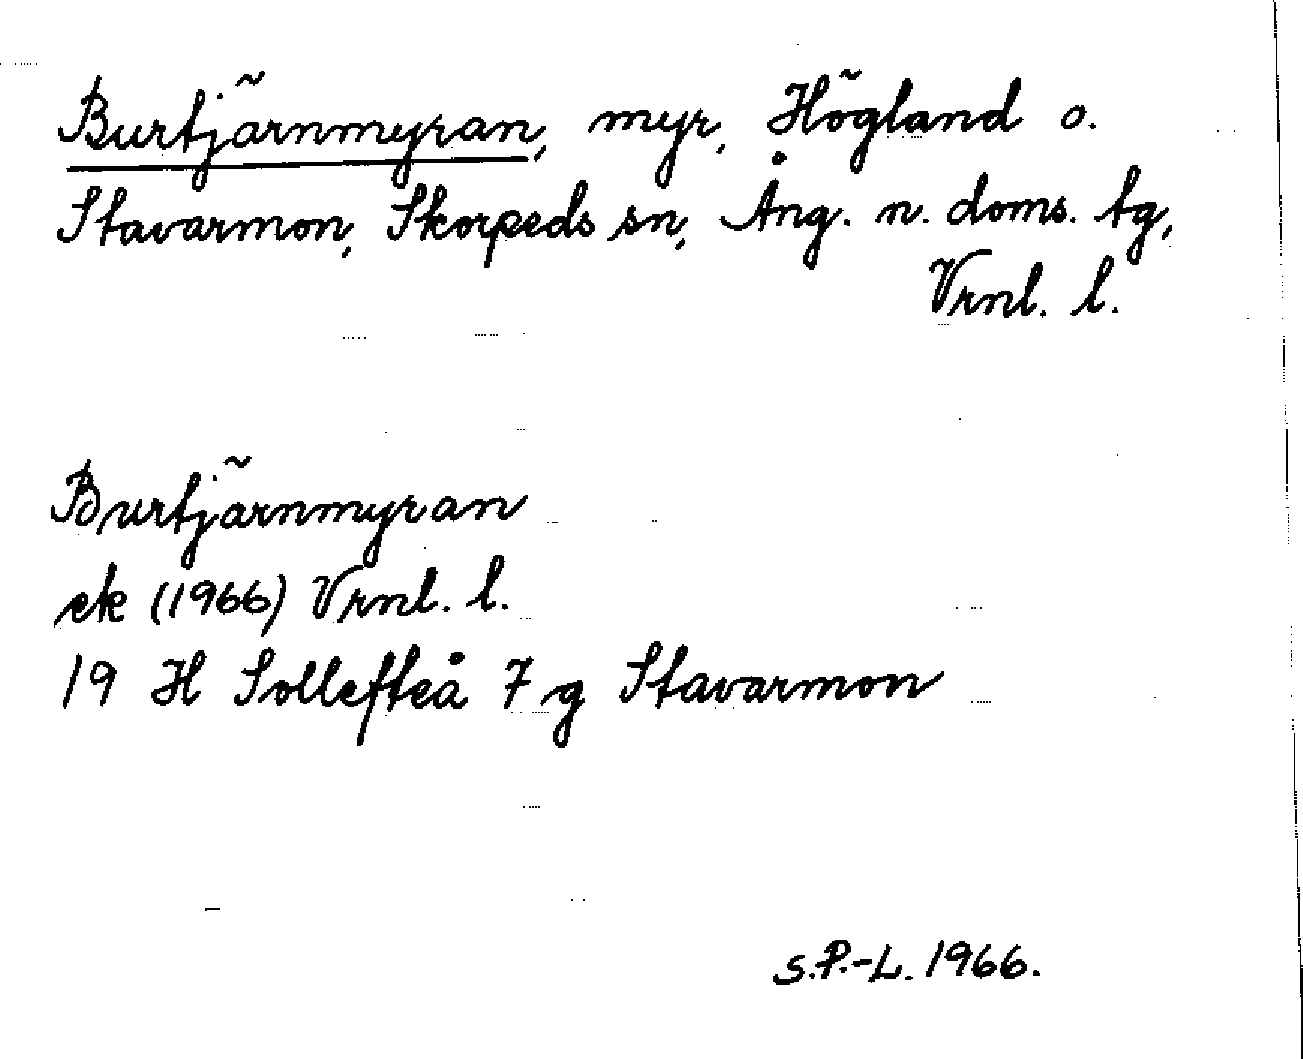 Burtjärnmyran, myr, Högland o.
Stavarmon, Skorpeds sn, Ång. n. doms. tg,
Vrnl. l.
Burtjärnmyran
ek (1966) Vrnl. l.
19 H Sollefteå 7 g Stavarmon
S.P.-L. 1966.